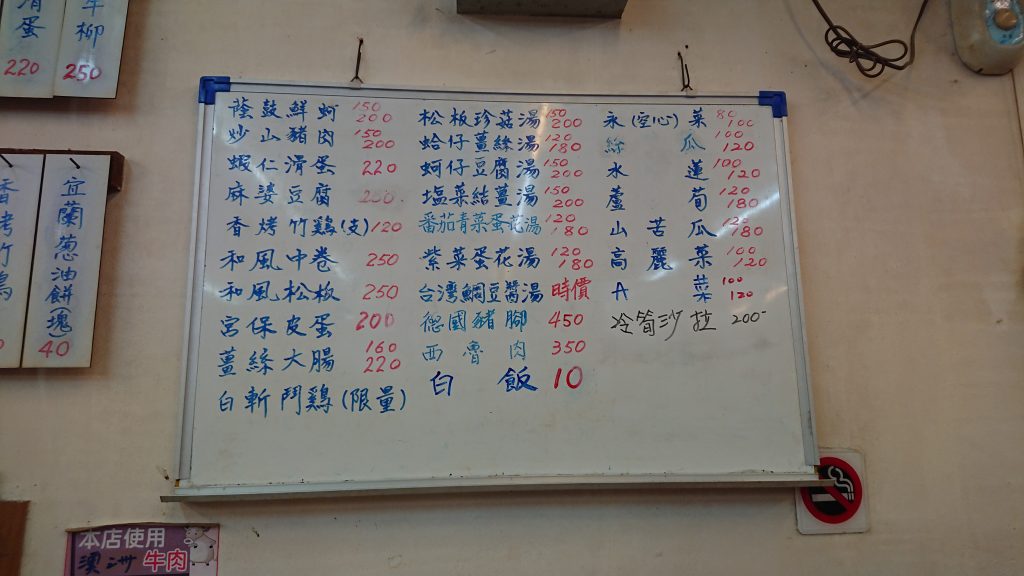 滑蛋
220
牛柳
250
香烤竹鷄
宜蘭蔥油餅(塊)
40
蔭鼓鮮蚵 150 200
炒山豬肉 150 200
蝦仁滑蛋 220
麻婆豆腐 200
香烤竹鷄(支) 120
和風中卷 250
和風松板 250
宮保皮蛋 200
薑絲大腸 160 220
白斬鬥鷄(限量)
松板珍菇湯 150 200
蛤仔薑絲湯 120 180
蚵仔豆腐湯 150 200
塩菜結薑湯 150 200
番茄青菜蛋花湯 120 180
紫菜蛋花湯 120 180
台灣鯛豆醬湯 時價
德國豬腳 450
西魯肉 350
白飯 10
永(空心)菜 80 100
絲瓜 100 120
水蓮 100 120
蘆荀 120 180
山苦瓜 120 180
高麗菜 100 120
A菜 100 120
冷筍沙拉 200-
本店使用
澳洲牛肉